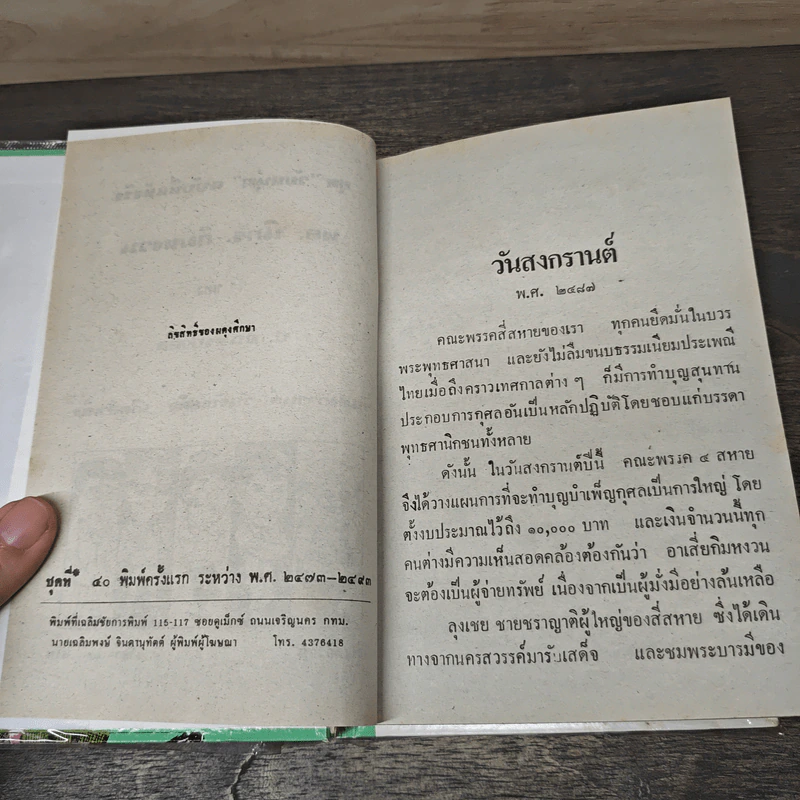 ลิขสิทธิ์ของผดุงศึกษา
ชุดที่ ๔๐ พิมพ์ครั้งแรก ระหว่าง พ.ศ. ๒๔๗๓–๒๔๙๓
พิมพ์ที่เฉลิมชัยการพิมพ์ 115-117 ซอยคูเม็กซ์ ถนนเจริญนคร กทม.
นายเฉลิมพงษ์ จินดานุทัตต์ ผู้พิมพ์ผู้โฆษณา โทร. 4376418
วันสงกรานต์
พ.ศ. ๒๔๘๗
คณะพรรคสี่สหายของเรา ทุกคนยึดมั่นในบวร
พระพุทธศาสนา และยังไม่ลืมขนบธรรมเนียมประเพณี
ไทยเมื่อถึงคราวเทศกาลต่าง ๆ ก็มีการทำบุญสุนทาน
ประกอบการกุศลอันเป็นหลักปฏิบัติโดยชอบแก่บรรดา
พุทธศานิกชนทั้งหลาย
ดังนั้น ในวันสงกรานต์ปีนี้ คณะพรรค ๔ สหาย
จึงได้วางแผนการที่จะทำบุญบำเพ็ญกุศลเป็นการใหญ่ โดย
ตั้งงบประมาณไว้ถึง ๑๐,๐๐๐ บาท และเงินจำนวนนี้ทุก
คนต่างมีความเห็นสอดคล้องต้องกันว่า อาเสี่ยกิมหงวน
จะต้องเป็นผู้จ่ายทรัพย์ เนื่องจากเป็นผู้มั่งมีอย่างล้นเหลือ
ลุงเชย ชายชราญาติผู้ใหญ่ของสี่สหาย ซึ่งได้เดิน
ทางจากนครสวรรค์มารับเสด็จ และชมพระบารมีของ